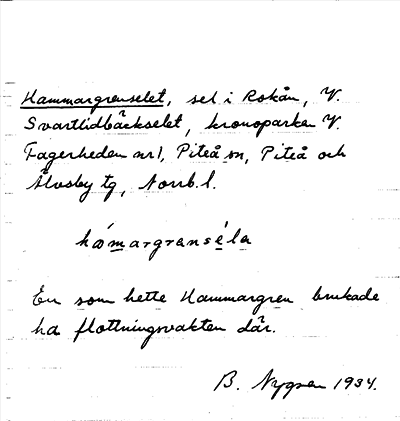 Hammargrenselet, sel i Rokån, V.
Svartlidbäckselet, kronoparken V.
Fagerheden nr 1, Piteå sn, Piteå och
Älvsby tg, Norrb. l.
hámargranséla
En som hette Hammargren brukade
ha flottningsvakten där.
B. Nygren 1934.